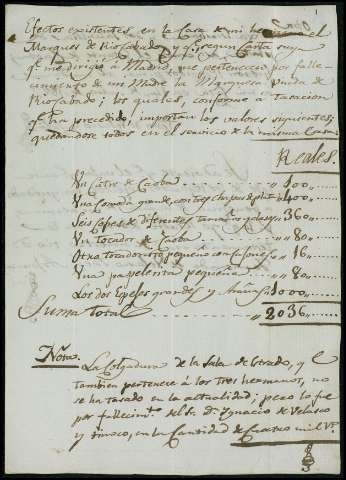 1
Efectos existentes en la Casa de mi hermano el
Marques de Riscabado, y qᵉ segun Carta suya
qᵉ me dirigio á Madrid, me pertenecen por falle-
cimiento de mi Madre la Marquesa Viuda de
Riscabado; los quales, conforme a tasacion
qᵉ ha precedido, importan los valores siguientes;
quedandose todos en el servicio de la misma Casa.
Reales.
Un Catre de Caoba ....... 100 ,,
Una Comoda grande, con tres chapas de plata 400 ,,
Seis Cofres de diferentes tamaños y clases 360 ,,
Un tocador de Caoba ....... ,, 80 ,,
Otro tocadorsito pequeño con Cajones ,, 16 ,,
Una papelerita pequeña ....... ,, 80 ,,
Los dos Espejos grandes y Arañas 1000 ,,
Suma total ....... 2036 ,,
Nota.
La Colgadura de la Sala de Estrado, y qᵉ
tambien pertenece á los tres hermanos, no
se ha tasado en la actualidad; pero lo fue
por fallecimᵗᵒ del Sr. Dⁿ Ignacio de Velasco
y en la Cantidad de Cuatro mil Vⁿ